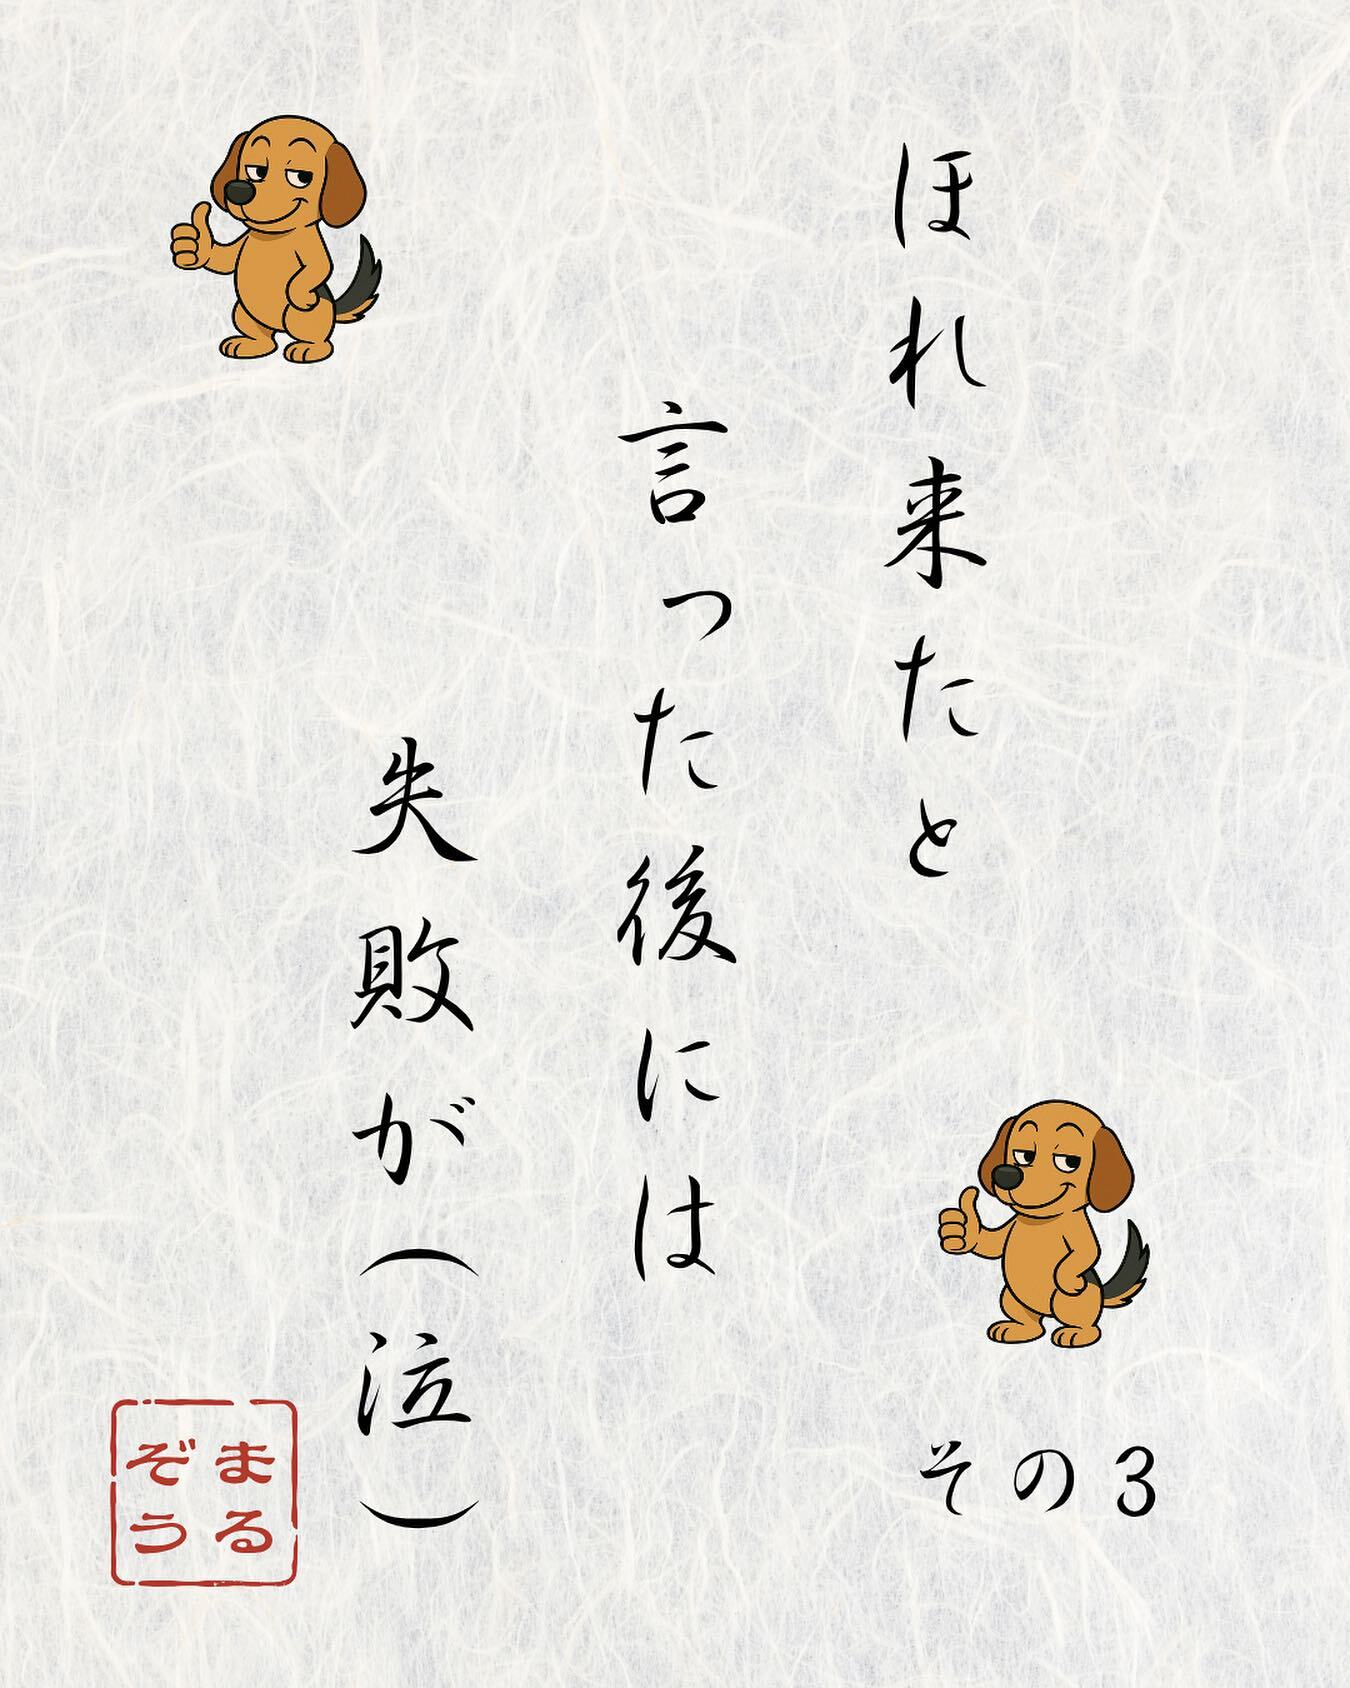 ほれ来たと
言った後には
失敗が(泣)
その3
まる
ぞう